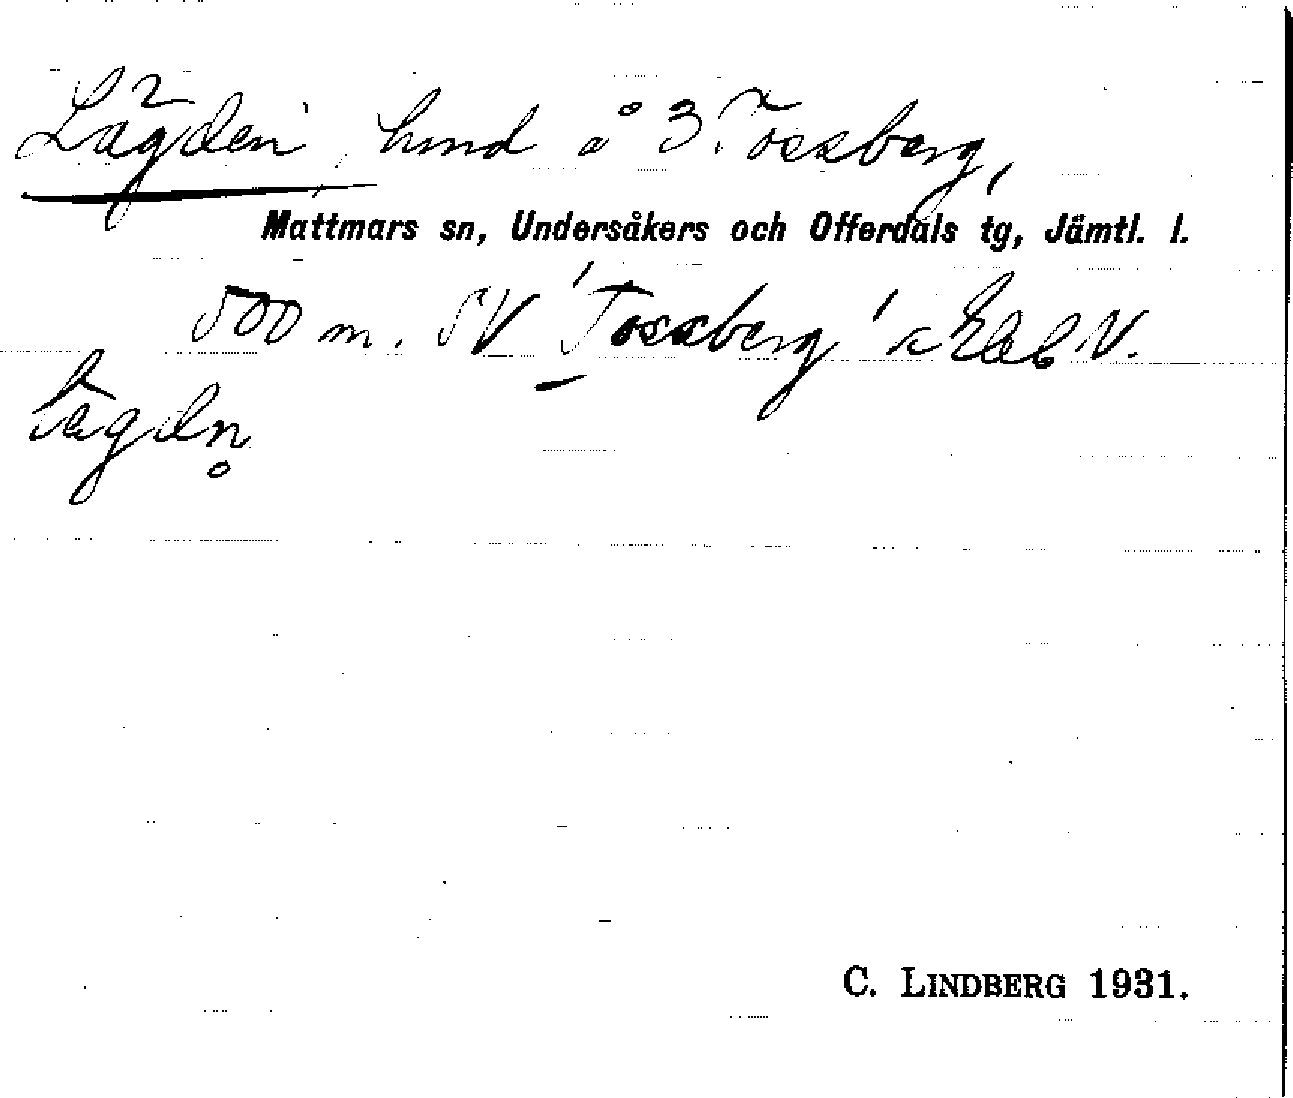 Lägden, hmd å 3 Tossberg,
Mattmars sn, Undersåkers och Offerdals tg, Jämtl. l.
500 m. SV 'Tossberg' å Ekbl V.
lägdn̥
C. LINDBERG 1931.